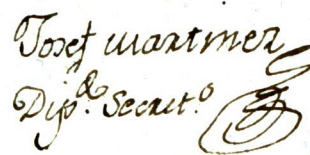 Josef Martinez
Dip.<sup>do</sup> Secret.º